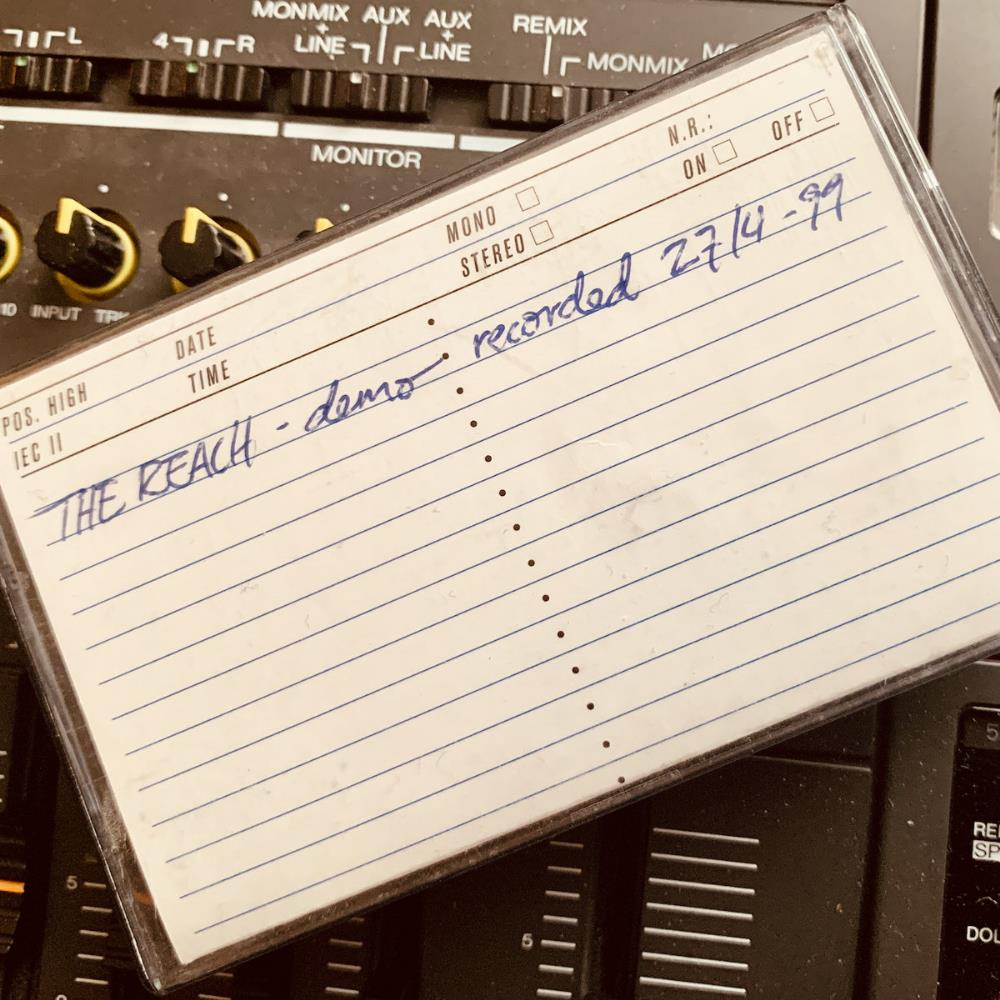 MONMIX AUX AUX
+ +
LINE LINE
REMIX
MONMIX
L
4 R
MONITOR
10 INPUT
N.R.:
MONO ON OFF
STEREO
DATE
POS. HIGH TIME
IEC II
THE REACH - demo recorded 27/4-99
5
5
5
0